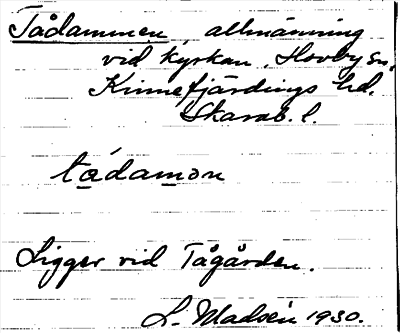 Tådammen, allmänning
vid kyrkan, Hovby sn,
Kinnefjärdings hd.
Skarab. l.
tådamon
Ligger vid Tågården.
L. Madsén 1930.